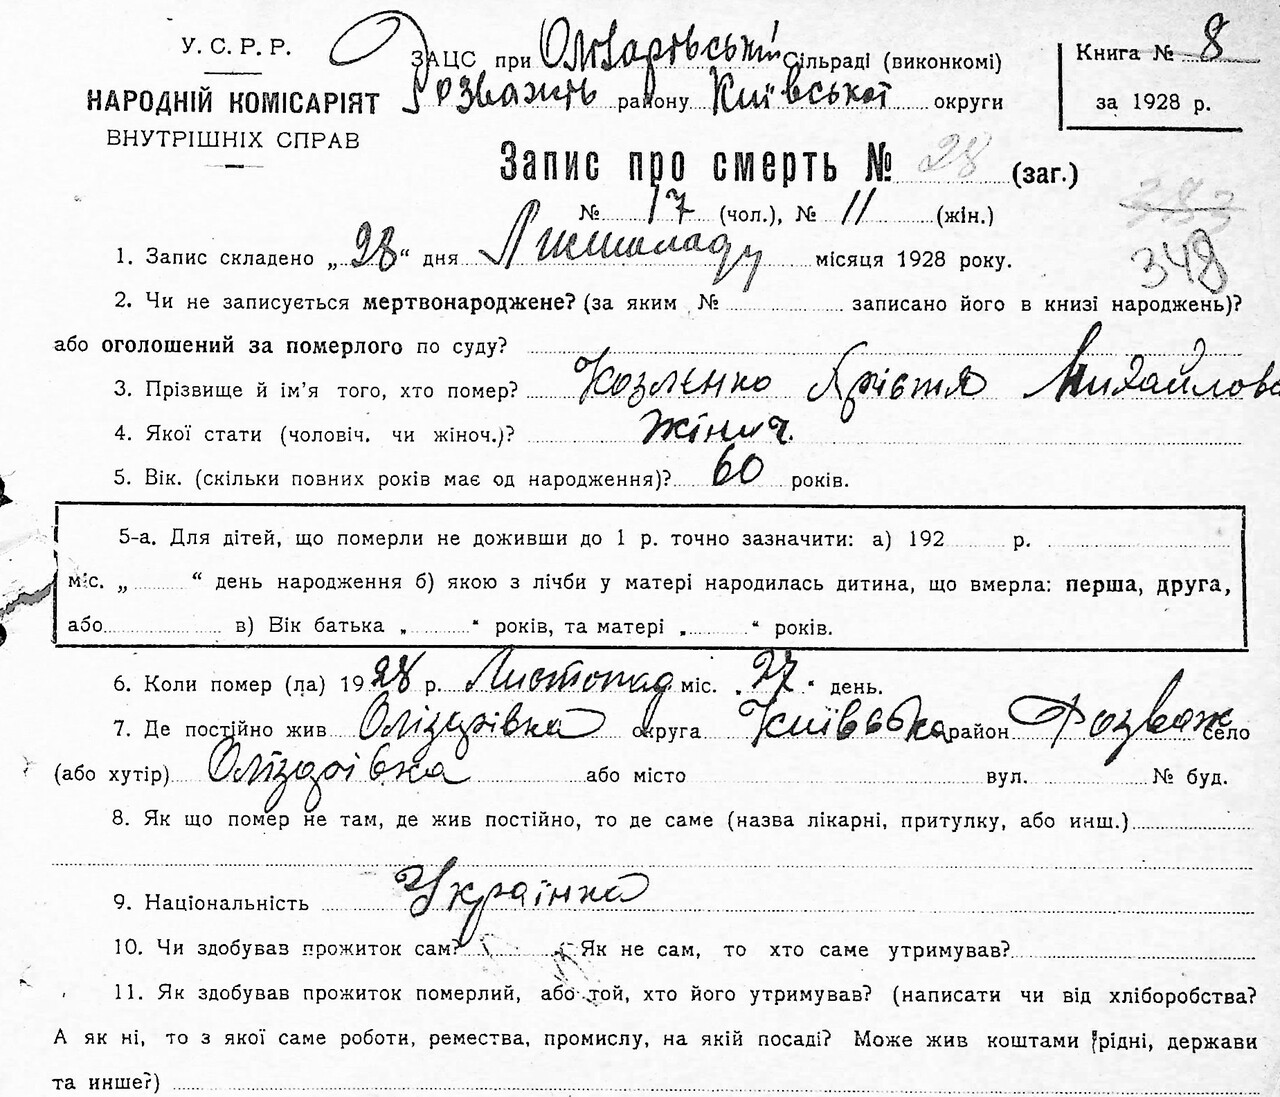 У. С. Р. Р.
НАРОДНІЙ КОМІСАРІЯТ
ВНУТРІШНІХ СПРАВ
ЗАЦС при сільраді (виконкомі)
Розважів району Київської округи
Книга № 8
за 1928 р.
Запис про смерть № 28 (заг.)
№ 17 (чол.), № 11 (жін.)
383
348
1. Запис складено „28“ дня Листопаду місяця 1928 року.
2. Чи не записується мертвонароджене? (за яким № записано його в книзі народжень)?
або оголошений за померлого по суду?
3. Прізвище й ім'я того, хто помер? Козленко Михайлова
4. Якої стати (чоловіч. чи жіноч.)? Жіноч.
5. Вік. (скільки повних років має од народження)? 60 років.
5-а. Для дітей, що померли не доживши до 1 р. точно зазначити: а) 192 р.
міс. „ “ день народження б) якою з лічби у матері народилась дитина, що вмерла: перша, друга,
або в) Вік батька „ “ років, та матері „ “ років.
6. Коли помер (ла) 1928 р. Листопад міс. „27“ день.
7. Де постійно жив округа Київська район Розваж село
(або хутір) або місто вул. № буд.
8. Як що помер не там, де жив постійно, то де саме (назва лікарні, притулку, або инш.)
9. Національність Українка
10. Чи здобував прожиток сам? Як не сам, то хто саме утримував?
11. Як здобував прожиток померлий, або той, хто його утримував? (написати чи від хліборобства?
А як ні, то з якої саме роботи, ремества, промислу, на якій посаді? Може жив коштами рідні, держави
та инше?)